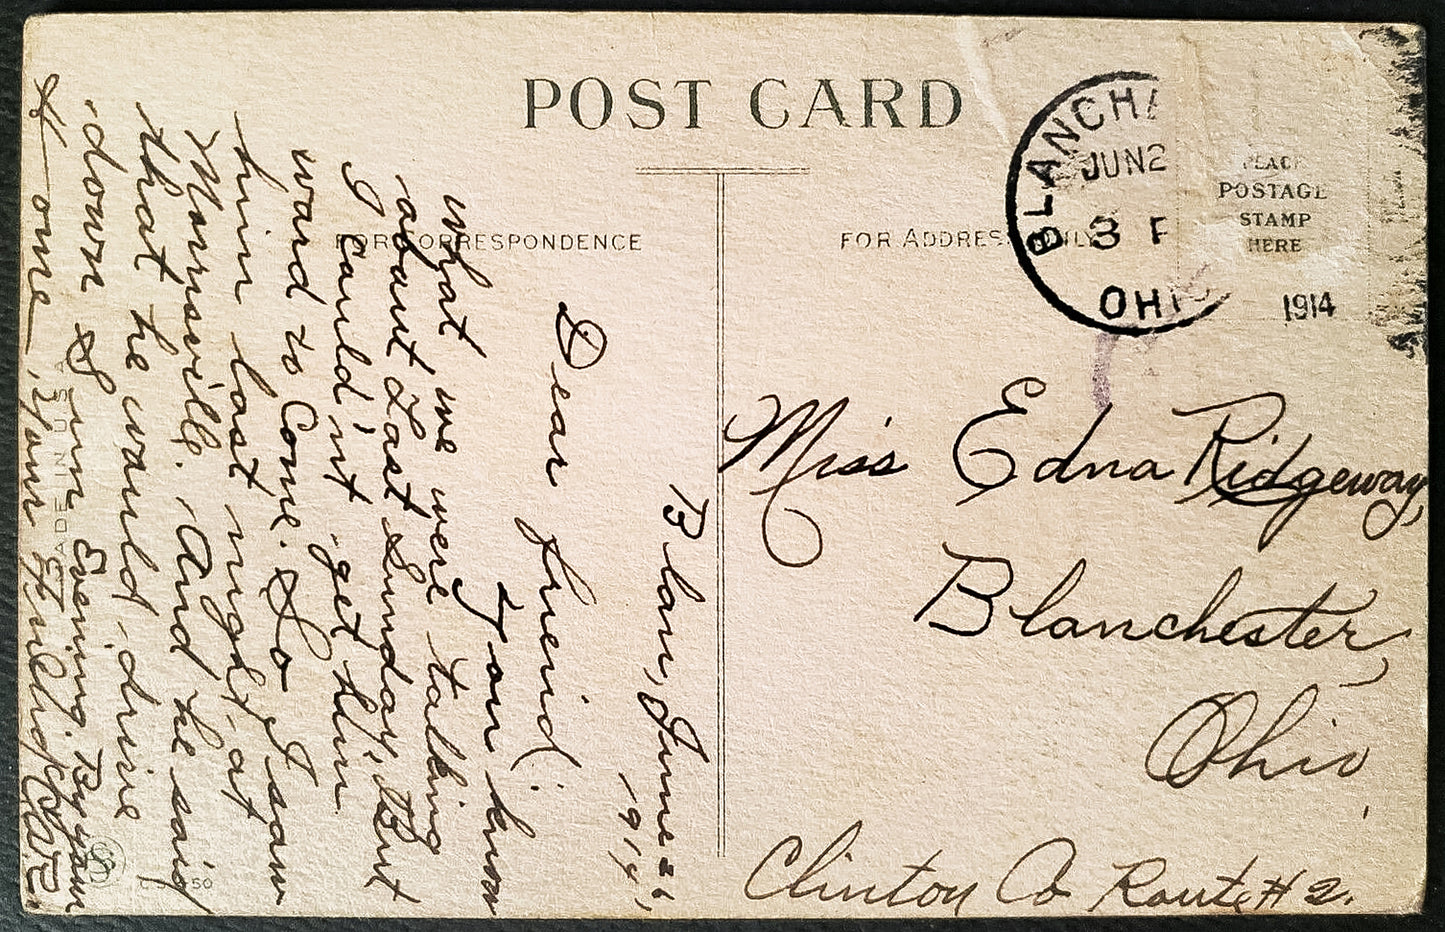 POST CARD
FOR CORRESPONDENCE
FOR ADDRESS ONLY
BLANCH
JUN 2
3 P
OHIO
1914
PLACE
POSTAGE
STAMP
HERE
Miss Edna Ridgeway,
Blanchester,
Ohio.
Clinton Co Route # 2.
Blan, June 26,
1914,
Dear friend:
You know
what we were talking
about Last Sunday, But
I Could'nt get him
ward to Come. So I saw
him last night at
Morrisville. And he said
that he would drive
down Sun Evening. By yow
Home, Your Friend
MADE IN USA